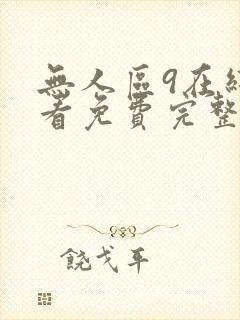 無人區9在線
看免費完整
饒戈平